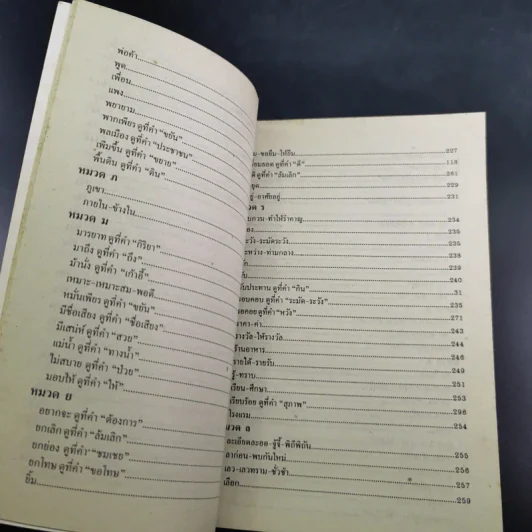 พ่อค้า
พูด
เพื่อน
แพง
พยายาม
พากเพียร ดูที่คำ “ขยัน”
พลเมือง ดูที่คำ “ประชาชน”
เพิ่มขึ้น ดูที่คำ “ขยาย”
พื้นดิน ดูที่คำ “ดิน”
หมวด ภ
ภูเขา
ภายใน-ข้างใน
หมวด ม
มารยาท ดูที่คำ “กิริยา”
มาถึง ดูที่คำ “ถึง”
ม้านั่ง ดูที่คำ “เก้าอี้”
เหมาะ-เหมาะสม-พอดี
หมั่นเพียร ดูที่คำ “ขยัน”
มีชื่อเสียง ดูที่คำ “ชื่อเสียง”
มีเสน่ห์ ดูที่คำ “สวย”
แม่น้ำ ดูที่คำ “ทางน้ำ”
ไม่สบาย ดูที่คำ “ป่วย”
มอบให้ ดูที่คำ “ให้”
หมวด ย
อยากจะ ดูที่คำ “ต้องการ”
ยกเลิก ดูที่คำ “ล้มเลิก”
ยกย่อง ดูที่คำ “ชมเชย”
ยกโทษ ดูที่คำ “ขอโทษ”
ยิ้ม
-ขอยืม-ให้ยืม 227
ดูที่คำ “ดี” 118
ดูที่คำ “ล้มเลิก” 261
229
-อาศัยอยู่ 231
ร
บกวน-ทำให้รำคาญ 234
235
-ระมัดระวัง 238
-ท่ามกลาง 239
240
ประทาน ดูที่คำ “กิน” 31
ดูที่คำ “ระมัด-ระวัง” 235
ดูที่คำ “หวัง” 271
ราคา-ค่า 243
รางวัล-ให้รางวัล 244
ร้านอาหาร 246
รายได้-รายรับ 248
รู้-ทราบ 249
เรียน-ศึกษา 251
เรียบร้อย ดูที่คำ “สุภาพ” 296
โรงแรม 254
หมวด ล
ละเอียดละออ-จู้จี้-พิถีพิถัน 255
ลาก่อน-พบกันใหม่ 256
เลว-เลวทราม-ชั่วช้า 257
เลือก 259